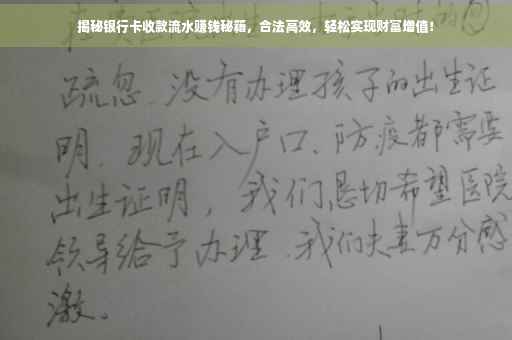 揭秘银行卡收款流水赚钱秘籍，合法高效，轻松实现财富增值！
疏忽.没有办理孩子的出生证
明.现在入户口、防疫都需要
出生证明，我们恳切希望医院
领导给予办理.我们夫妻万分感
激。